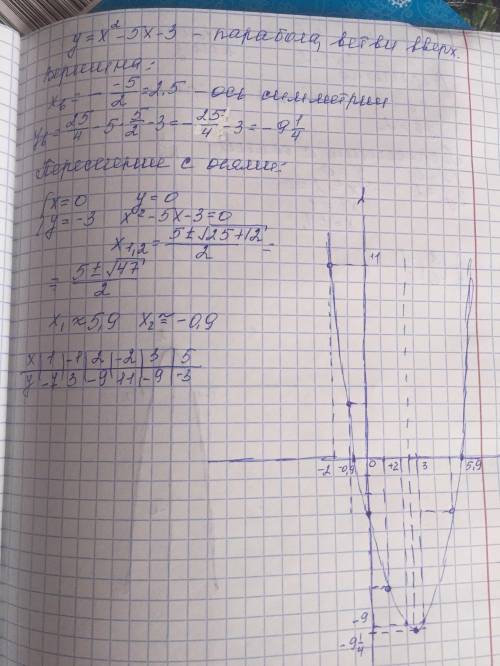 y=x²-5x-3 - парабола, ветви вверх.
Вершина:
x_в = - -5/2 = 2,5 - ось симметрии
y_в = 25/4 - 5·5/2 - 3 = - 25/4 - 3 = -9 1/4
Пересечение с осями:
{x=0 y=0
{y=-3 x²-5x-3=0
x₁,₂ = (5±√25+12)/2 =
= (5±√47)/2
x₁≈5,9 x₂≈-0,9
x | 1 | -1 | 2 | -2 | 3 | 5
y | -7 | 3 | -9 | 11 | -9 | -3
11
-2 -0,9 0 +2 3 5,9
-9
-9 1/4